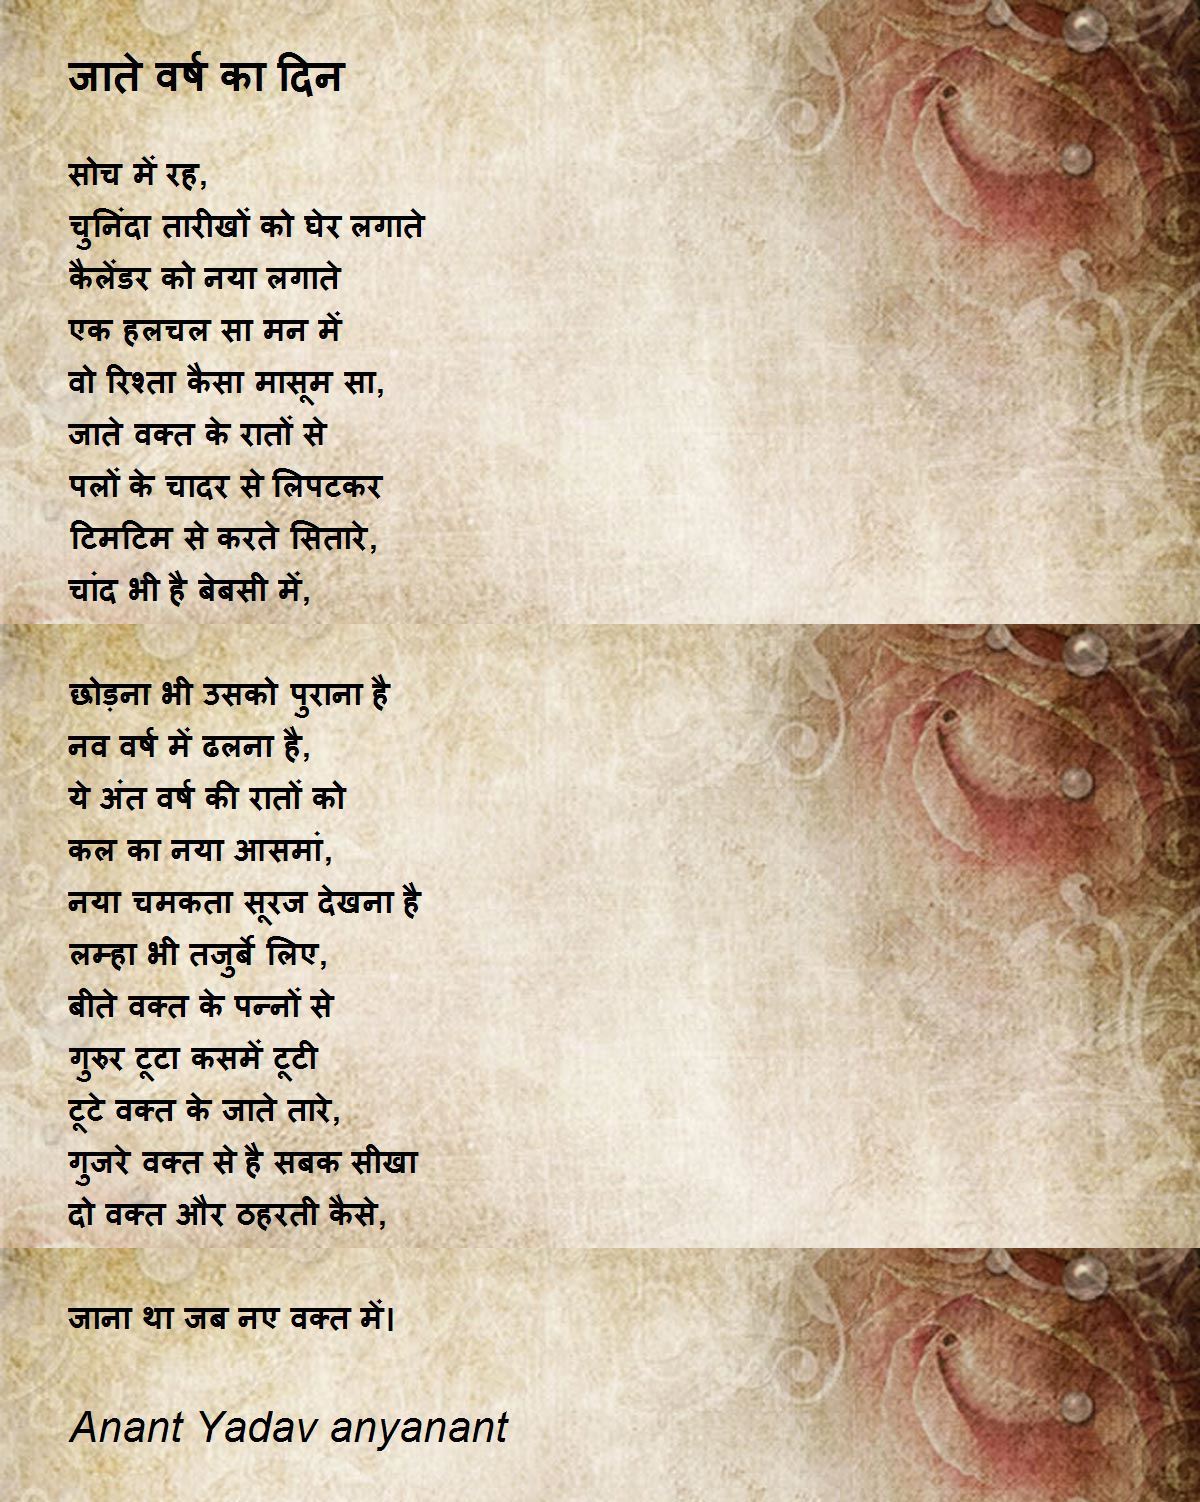 जाते वर्ष का दिन
सोच में रह,
चुनिंदा तारीखों को घेर लगाते
कैलेंडर को नया लगाते
एक हलचल सा मन में
वो रिश्ता कैसा मासूम सा,
जाते वक्त के रातों से
पलों के चादर से लिपटकर
टिमटिम से करते सितारे,
चांद भी है बेबसी में,
छोड़ना भी उसको पुराना है
नव वर्ष में ढलना है,
ये अंत वर्ष की रातों को
कल का नया आसमां,
नया चमकता सूरज देखना है
लम्हा भी तजुर्बे लिए,
बीते वक्त के पन्नों से
गुरुर टूटा कसमें टूटी
टूटे वक्त के जाते तारे,
गुजरे वक्त से है सबक सीखा
दो वक्त और ठहरती कैसे,
जाना था जब नए वक्त में।
Anant Yadav anyanant